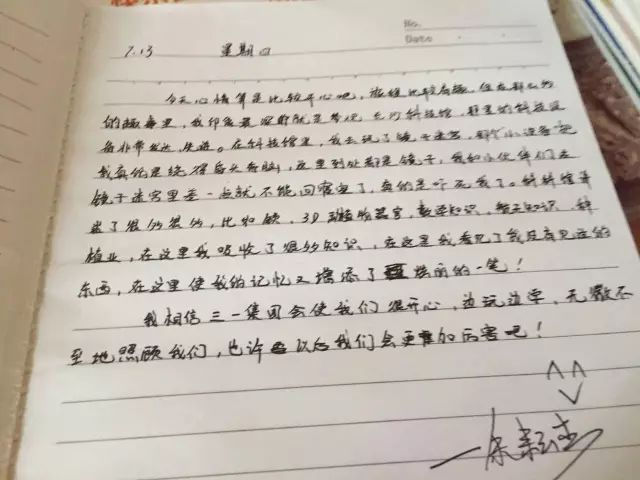 No.
Date
7.13 星期四
今天心情算是比较开心吧，旅程比较有趣，但在那么多
的趣事里，我印象最深的就是参观长沙科技馆，那里的科技设
备非常发达、先进。在科技馆里，我去玩了镜子迷宫，那个小设备把
我真的是绕得晕头转向，这里到处都是镜子，我和小伙伴们在
镜子迷宫里差一点就不能回宿舍了，真的是吓死我了。科技馆里
来了很多很多，比如，3D，器官，数学知识，航天知识，种
植业，在这里我吸收了很多知识，在这里我看见了我没有见过的
东西，在这里使我的记忆又增添了炫丽的一笔！
我相信三一集团会使我们很开心，边玩边学，无微不
至地照顾我们，也许以后我们会更加厉害吧！